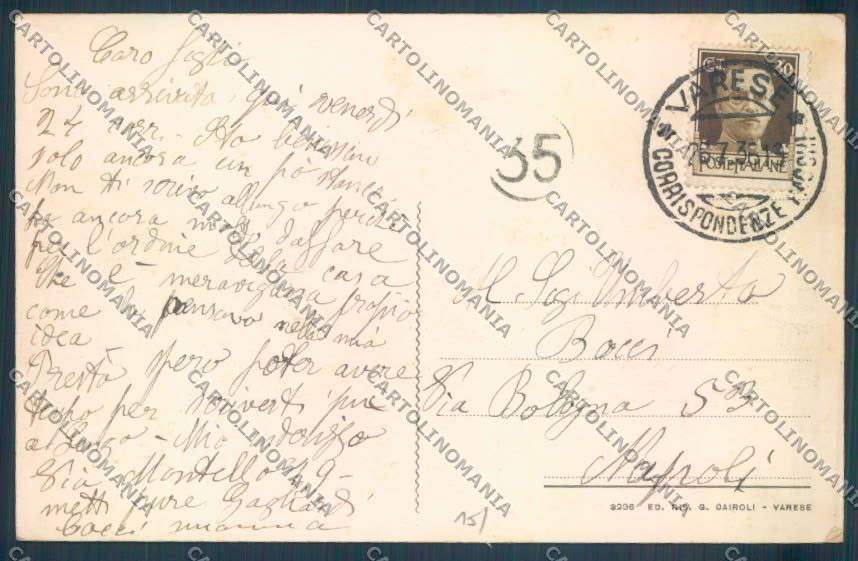 Caro
Sono arrivata qui venerdì
24 corr. Sto benissimo
solo ancora un pò stanca
Non ti scrivo allungo perchè
ho ancora molto daffare
per l'ordine della casa
che è meravigliosa proprio
come lo pensavo nella mia
idea -
Presto spero poter avere
tempo per scriverti più
a lungo - Mio indirizzo
Via Montello 9 -
metti pure Gagliardi
Bocci mamma
35
VARESE
CORRISPONDENZE PACCHI
CT. 30
POSTE ITALIANE
Al Sig Umberto
Bocci
Via Bologna 53
Napoli
9236 ED. RIS. G. CAIROLI - VARESE
15/
CARTOLINOMANIA